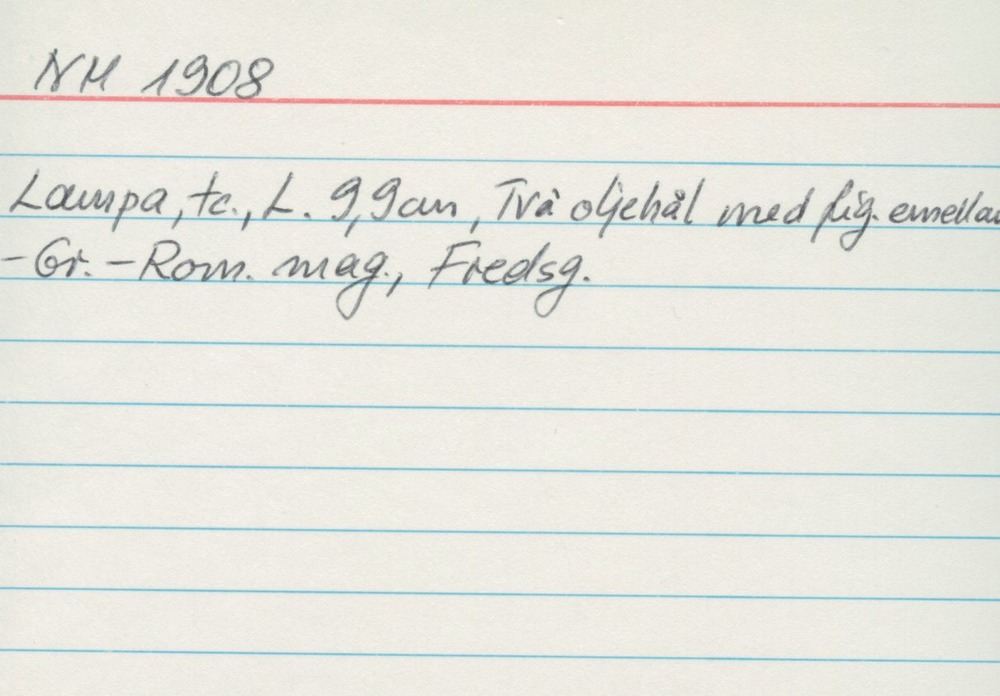 NM 1908
Lampa, tc., L. 9,9cm, Två oljehål med fig. emellan
- Gr. - Rom. mag., Fredsg.